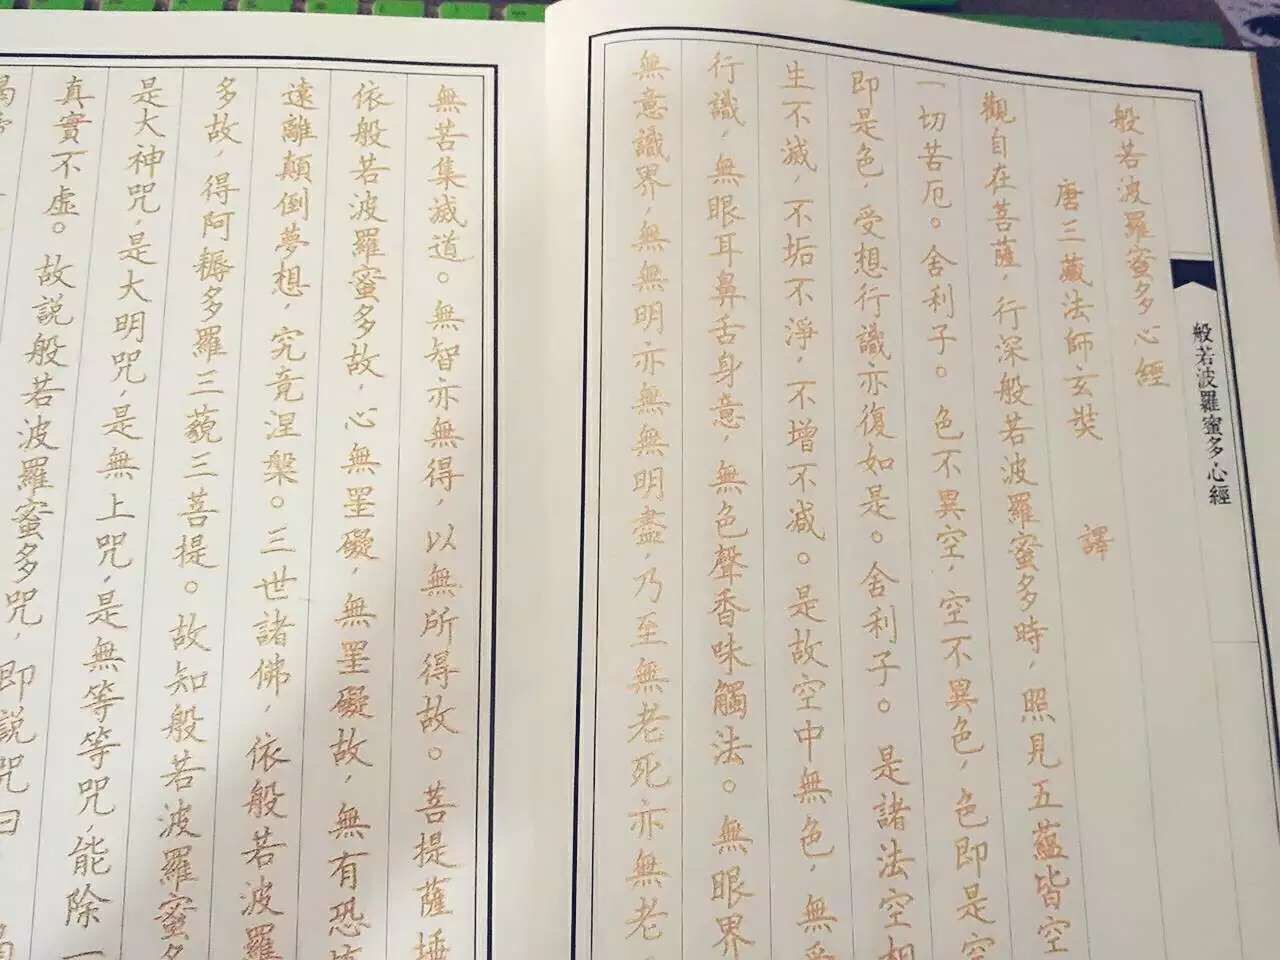 般若波羅蜜多心經
般若波羅蜜多心經
唐三藏法師玄奘 譯
觀自在菩薩，行深般若波羅蜜多時，照見五蘊皆空
一切苦厄。舍利子。色不異空，空不異色，色即是空
即是色，受想行識亦復如是。舍利子。是諸法空相
生不滅，不垢不淨，不增不減。是故空中無色，無受
行識，無眼耳鼻舌身意，無色聲香味觸法。無眼界
無意識界，無無明亦無無明盡，乃至無老死亦無老
無苦集滅道。無智亦無得，以無所得故。菩提薩埵
依般若波羅蜜多故，心無罣礙，無罣礙故，無有恐
遠離顛倒夢想，究竟涅槃。三世諸佛，依般若波羅
多故，得阿耨多羅三藐三菩提。故知般若波羅蜜多
是大神咒，是大明咒，是無上咒，是無等等咒，能除一
真實不虛。故說般若波羅蜜多咒，即說咒曰